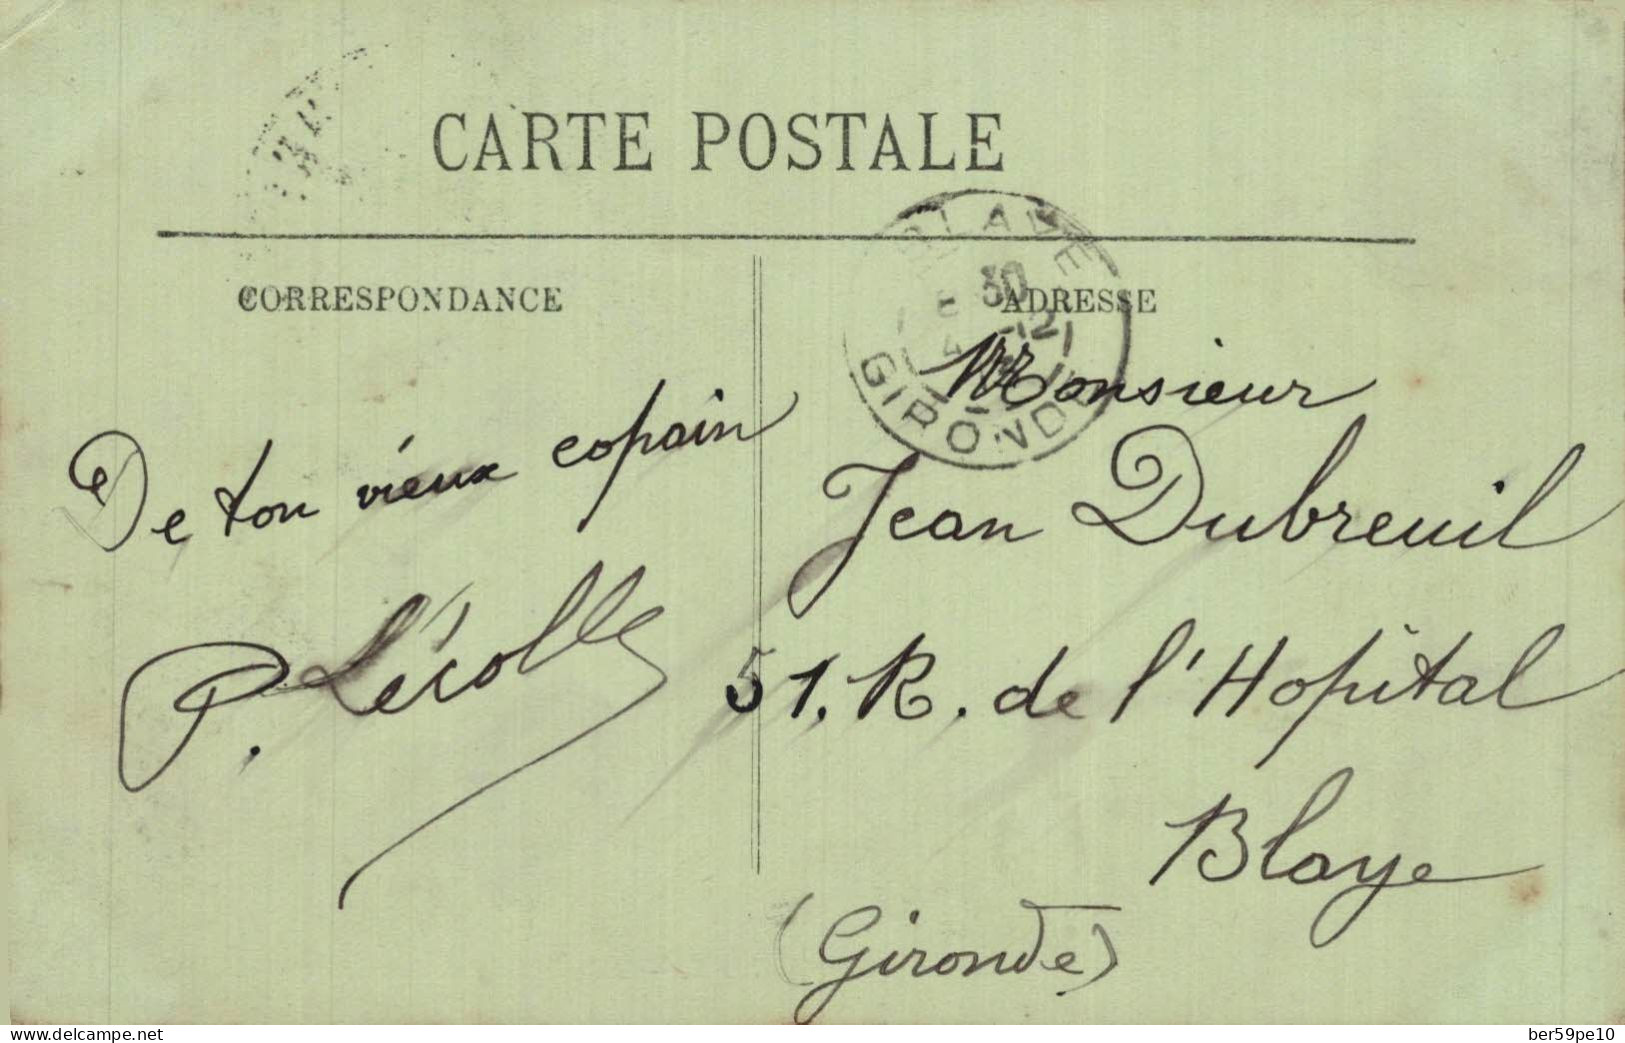 CARTE POSTALE
BLAYE
30
-12
GIRONDE
CORRESPONDANCE
ADRESSE
De ton vieux copain
P. Lécolle
Monsieur
Jean Dubreuil
51. R. de l'Hopital
Blaye
(Gironde)
www.delcampe.net
ber59pe10